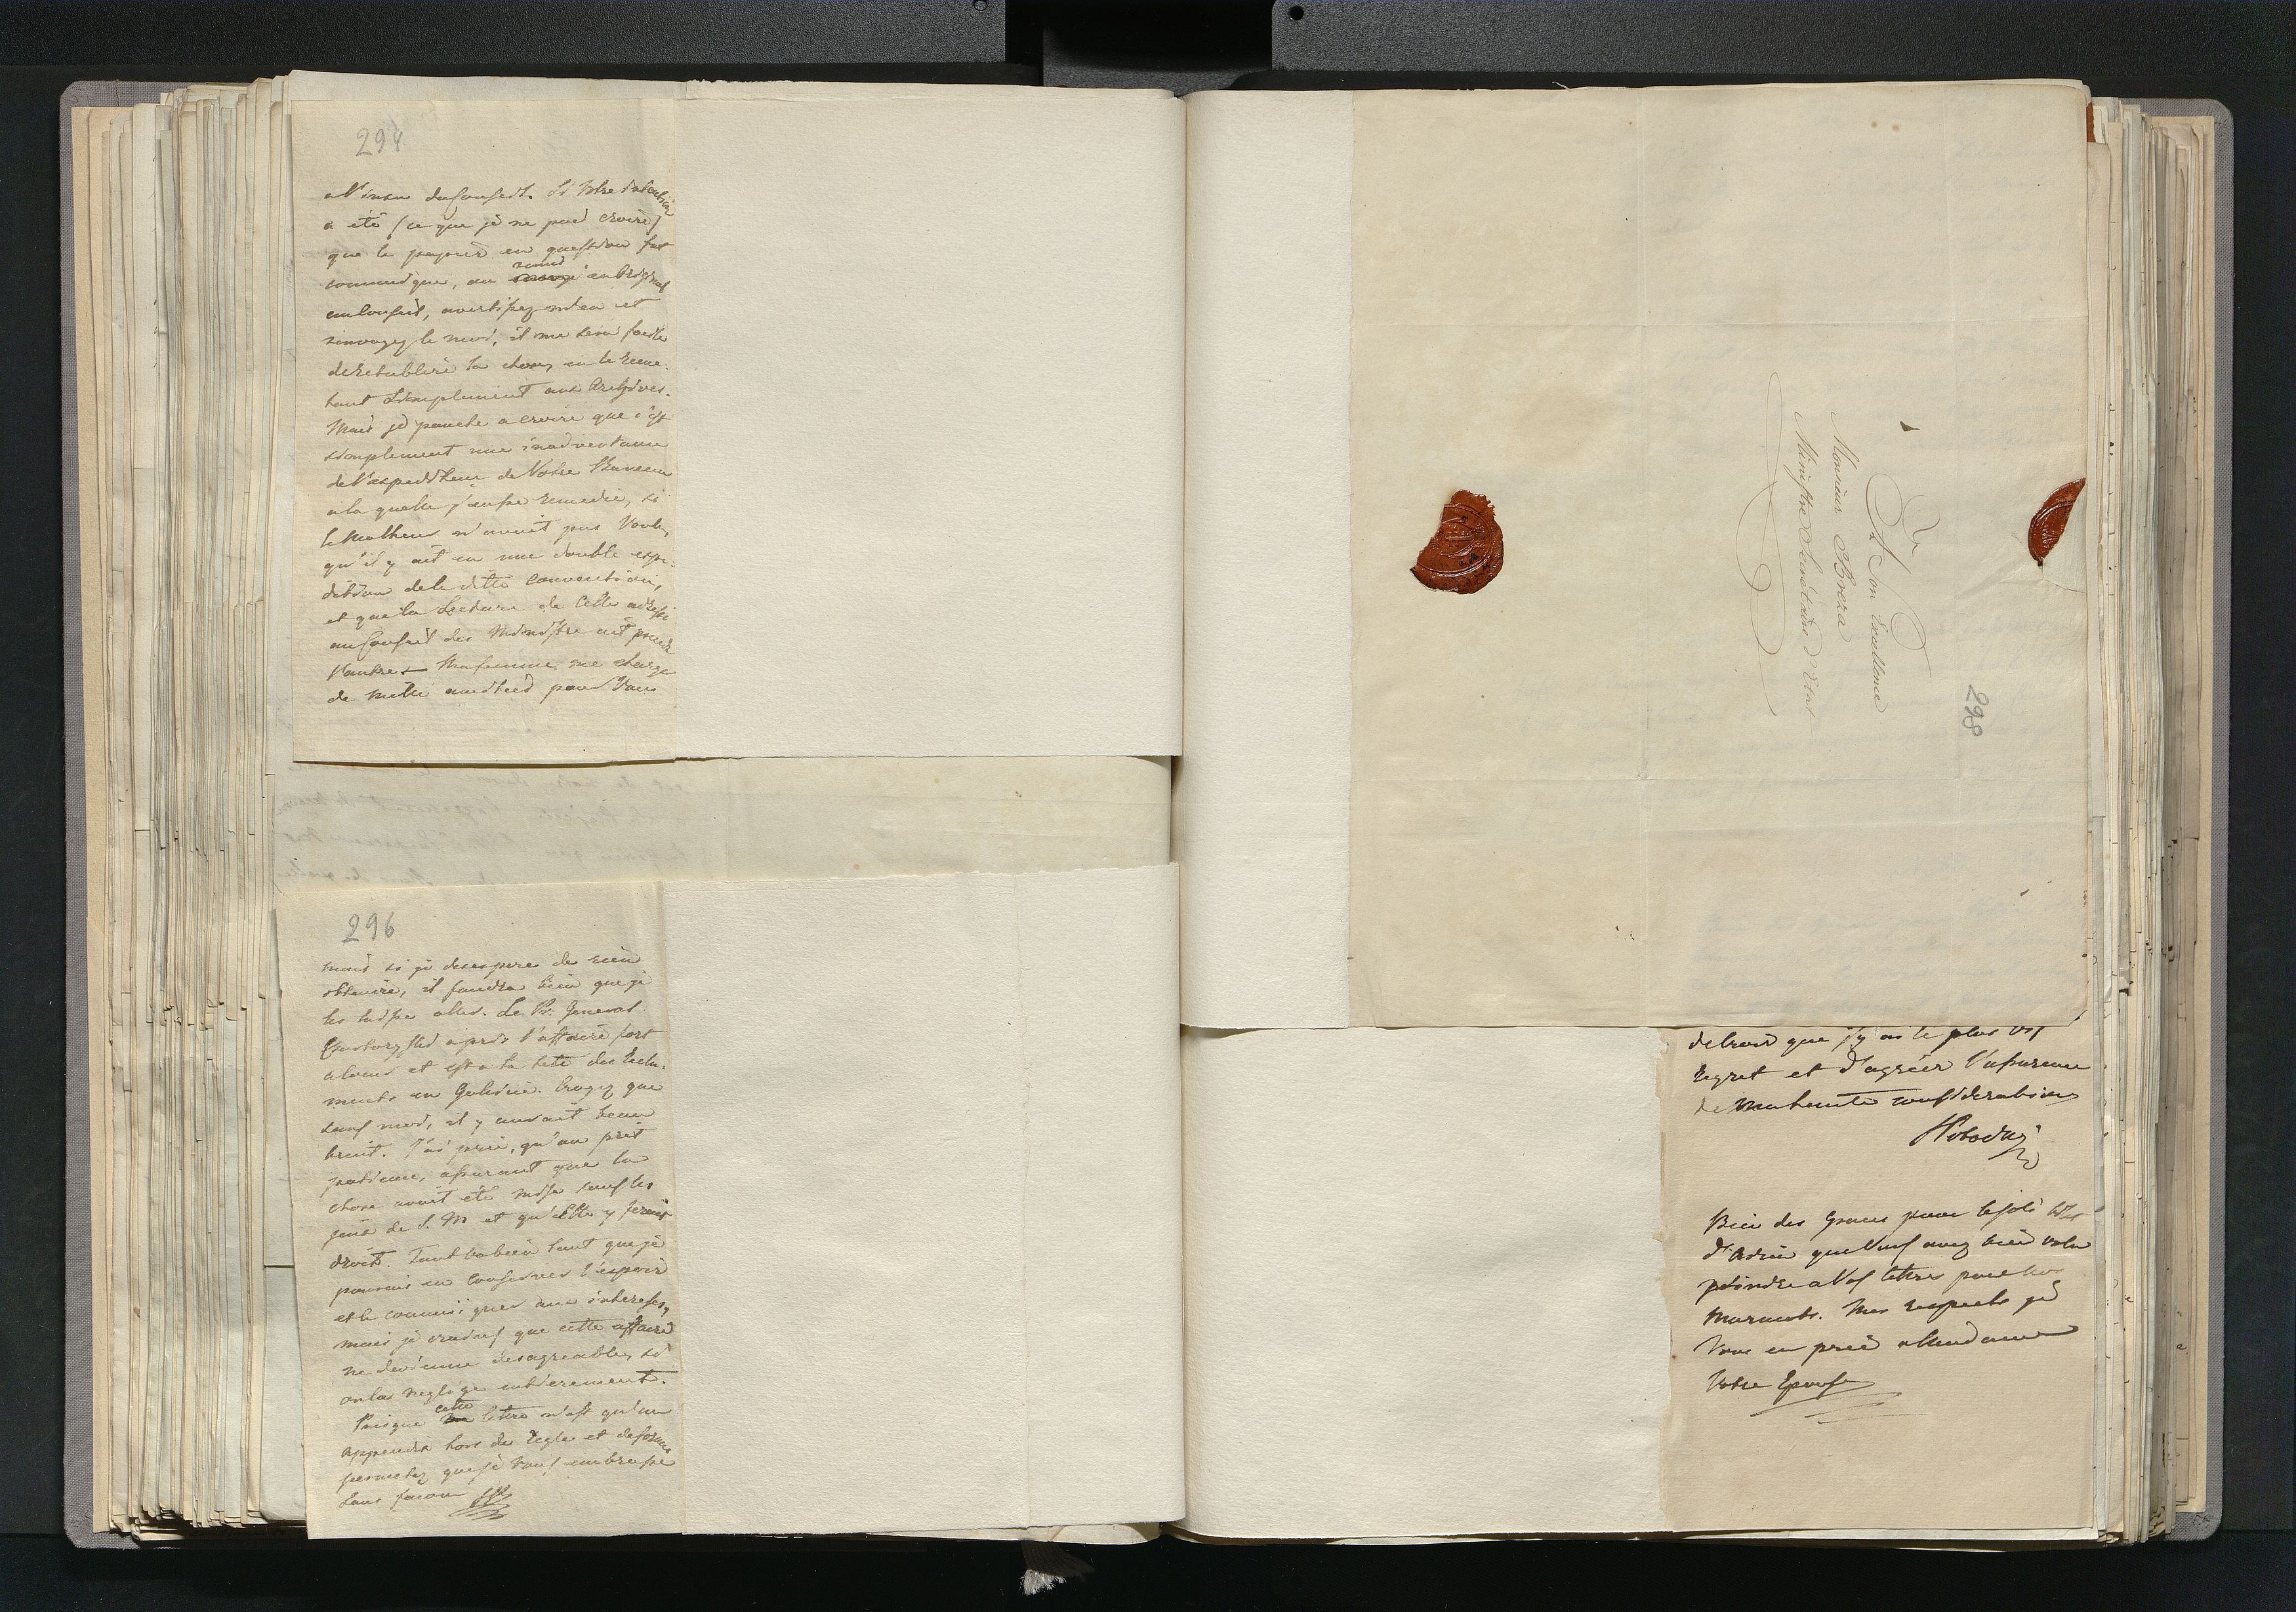 294
a l'insu du Conseil. Si Votre intention
a été (ce que je ne puis croire)
que le papier en question fut
communiqué, ou remis en Original
au Conseil, avertissez m'en et
renvoyez le moi, il me sera facile
de rétablire la chose, en le reme-
tant simplement aux Archives.
Mais je panche a croire que c'est
simplement une inadvertance
de l'expediteur de Votre Bureau
a la quelle j'eusse remedié, si
le Malheur n'avait pas voulu,
qu'il y ait eu une double expe-
dition de la ditte Convention,
et que la Lecture de Celle adressé
au Conseil des Ministre ait précedé
l'autre - Ma femme me charge
de mille amitiés pour Vous
296
mais si je desespere de rien
obtenire, il faudra bien que je
les laisse aller. Le Pr. General
Czartoryski a pris l'affaire fort
a coeur et est a la tete des Recla-
ments en Galicie. Croyez que
sans moi, il y aurait beau
bruit. J'ai prié, qu'on prit
patience, assurant que la
chose avait été mise sous les
yeux de S. M et qu'Elle y ferait
droit. Tant va bien tant que je
pourais en Conserver l'espoir
et le communiquer aux interessés,
mais je crains que cette affaire
ne devienne desagreable, si
on la neglige entierement.
Puisque cette lettre n'est qu'un
appendix hors de regle et de forme
permetez que je Vous embrasse
sans façon
298
A Son Excellence
Monsieur Breza
Ministre Secrétaire d'Etat
de croire que j'y ai le plus vif
Regret et d'agréer l'assurance
de Ma haute consideration
SPotocki
Bien des Graces pour le joli
que Vous avez bien voulu
joindre a Vos lettres pour
Mes respects je
Vous en prie a Madame
Votre Epouse